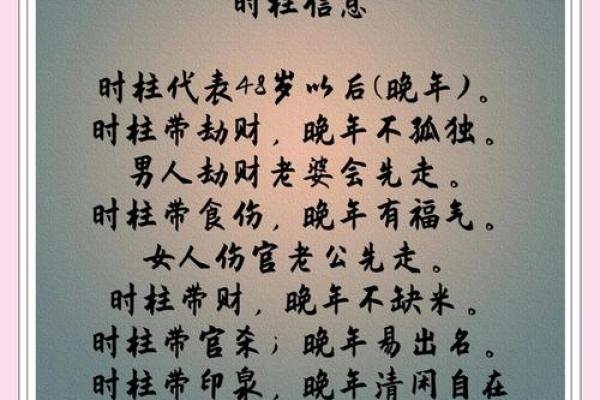 时柱信息
时柱代表48岁以后(晚年)。
时柱带劫财，晚年不孤独。
男人劫财老婆会先走。
时柱带食伤，晚年有福气。
女人伤官老公先走。
时柱带财，晚年不缺米。
时柱带官杀；晚年易出名。
时柱带印枭，晚年清闲自在